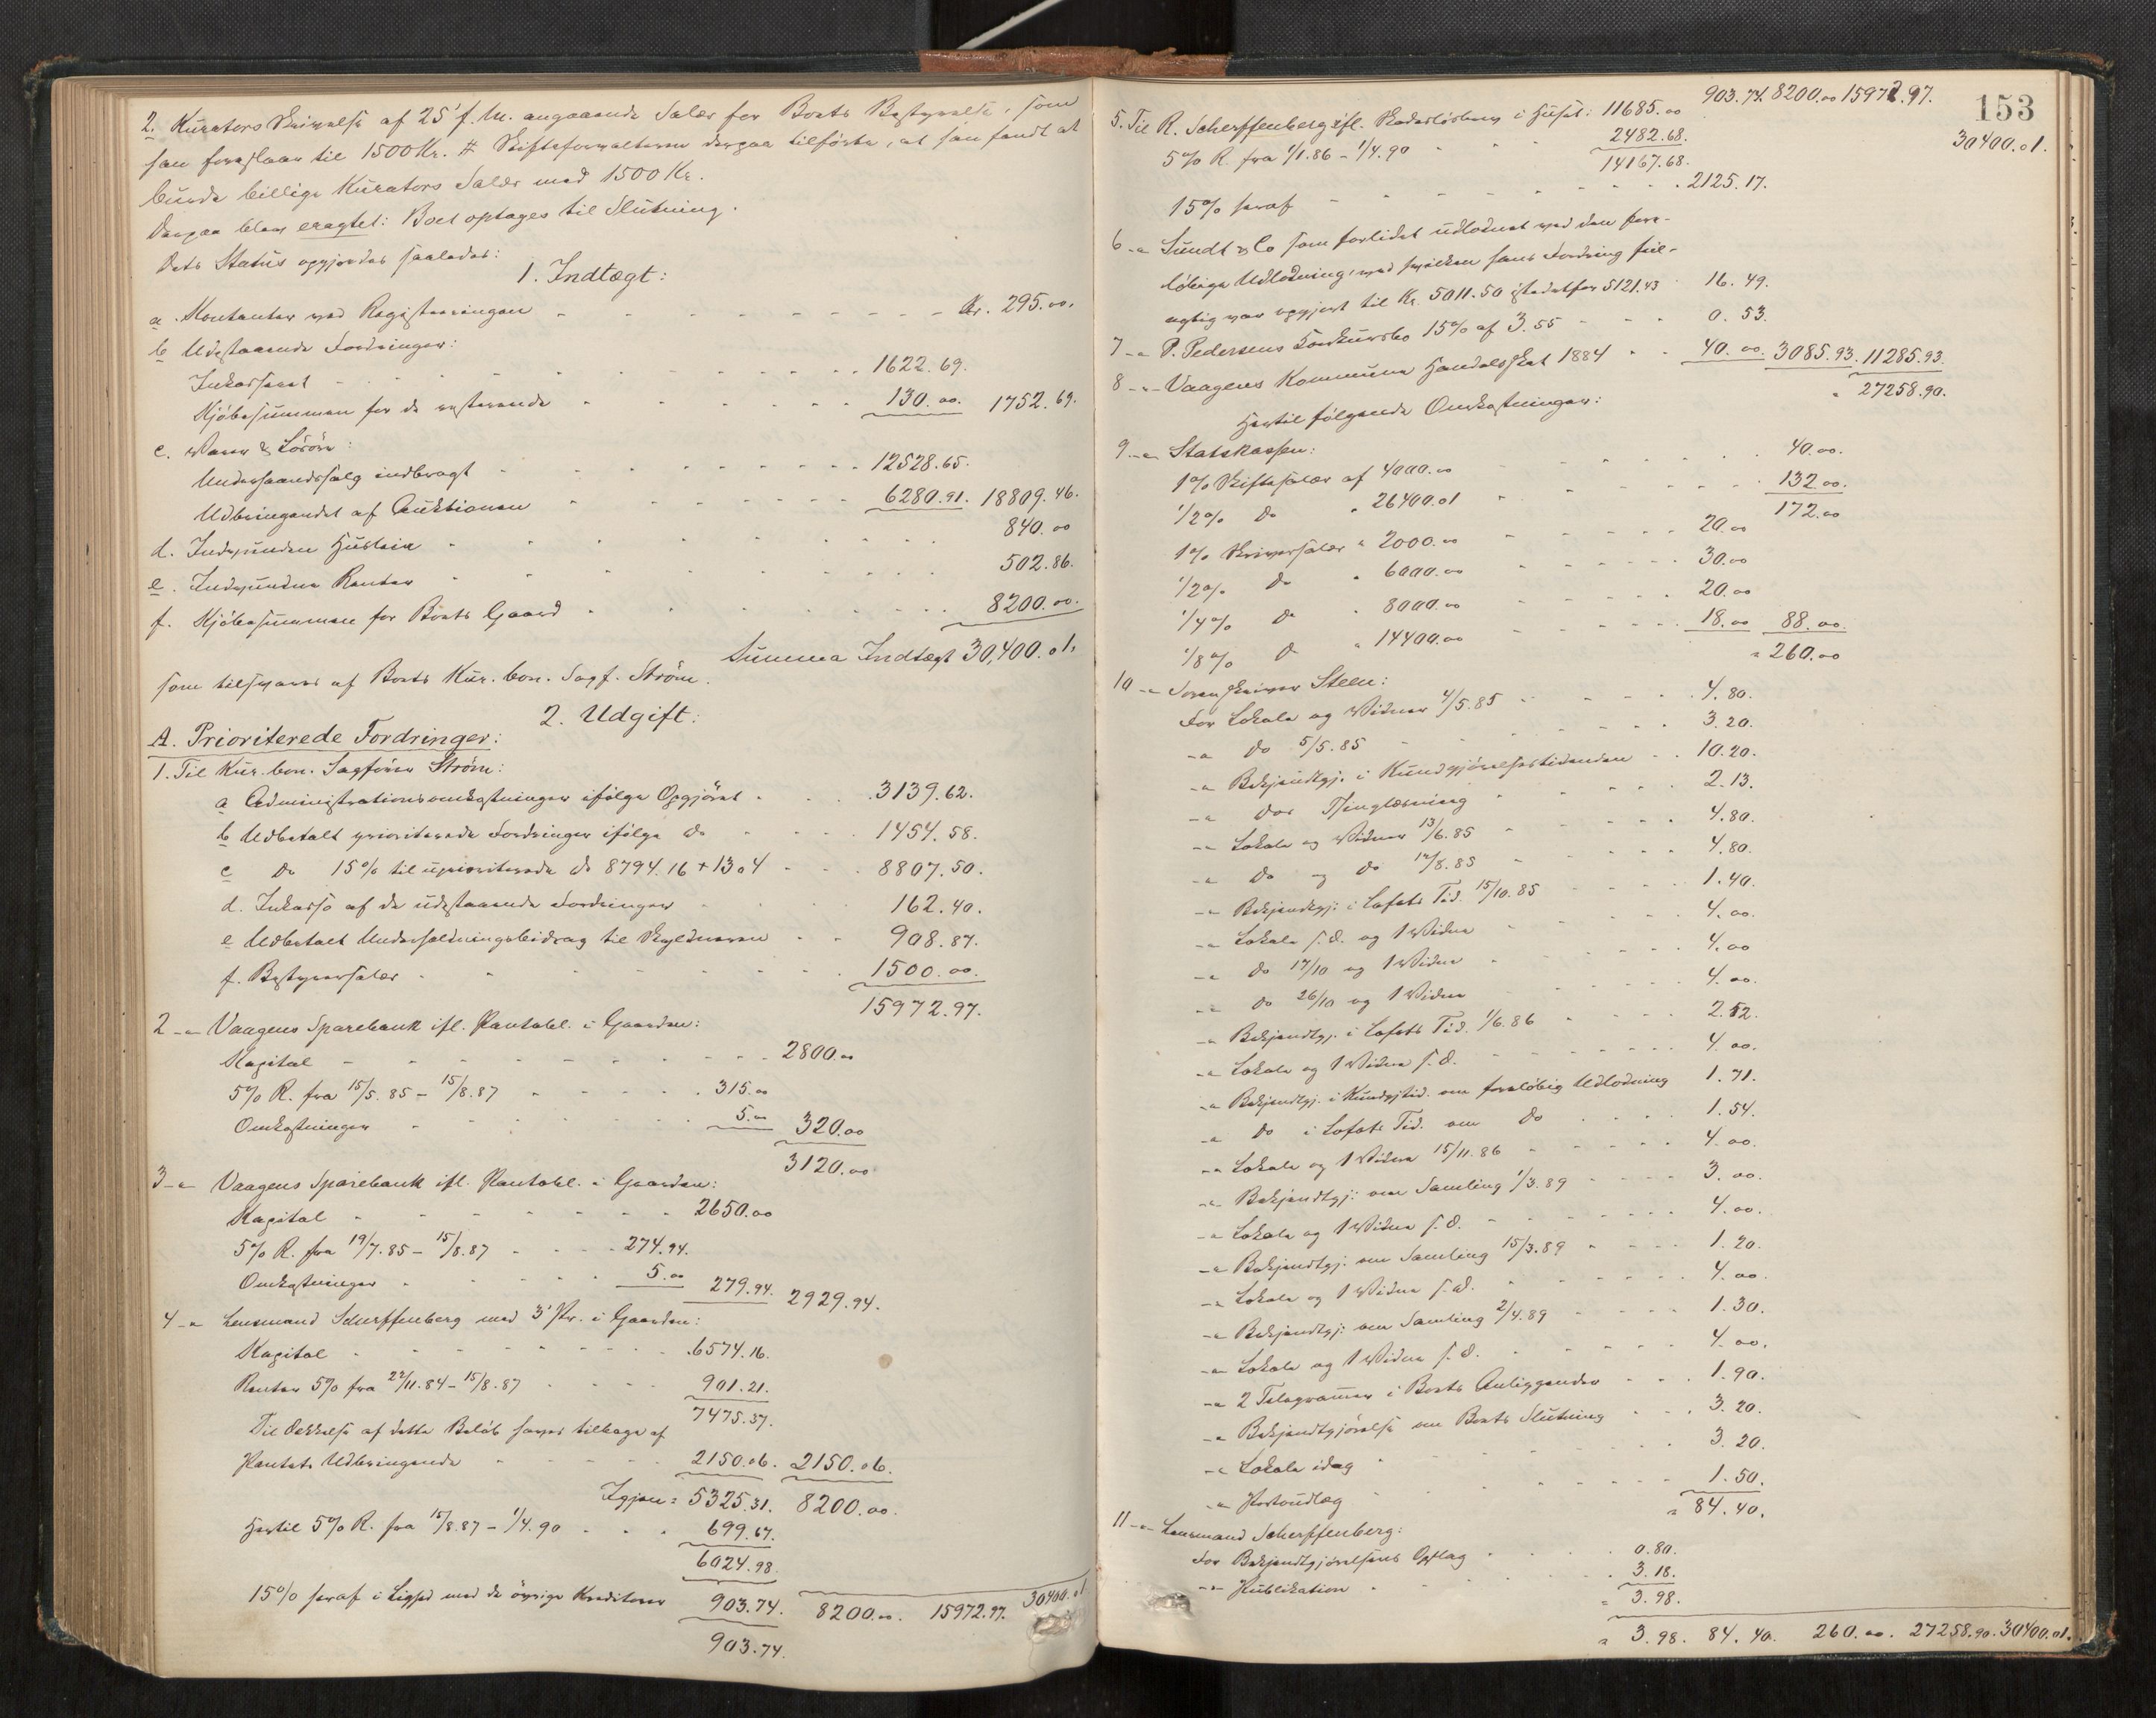 2. Kurators Skrivelse af 25' f. M. angaaende Salær for Boets Bestyrelse, som
han foreslaar til 1500 Kr. # Skifteforvalteren derpaa tilførte, at han fandt at
burde billige Kurators Salær med 1500 Kr.
Derpaa blev eragtet: Boet optages til Slutning.
Dets Status opgjordes saaledes:
1. Indtægt:
a. Kontanter ved Registreringen - - - Kr. 295.00.
b Udestaaende Fordringer:
Inkasseret - - - 1622.69.
Kjøbesummen for de resterende - - - 130.00. 1752.69.
c. Varer & Løsøre:
Underhaandssalg indbragt - - - 12528.65.
Udbringendet af Auktionen - - - 6280.91. 18809.46.
d. Indvunden Husleie - - - 840.00
e. Indvundne Renter - - - 502.86.
f. Kjøbesummen for Boets Gaard - - - 8200.00.
Summa Indtægt 30,400.01.
som tilsvares af Boets Kur. bon. Sagf. Strøm.
2. Udgift:
A. Prioriterede Fordringer:
1. Til Kur. bon. Sagfører Strøm:
a Administrationsomkostninger ifølge Opgjøret - - 3139.62.
b Udbetalt prioriterede Fordringer ifølge do - - 1454.58.
c Do 15% til uprioriterede do 8794.16 + 1304 - - 8807.50.
d. Inkasso af de udestaaende Fordringer - - 162.40.
e Udbetalt Underholdningsbidrag til Skyldneren - - 908.87.
f. Bestyrersalær - - - 1500.00.
15972.97.
2 -"- Vaagens Sparebank ifl. Panteobl. i Gaarden:
Kapital - - - 2800.00
5% R. fra 15/5.85 - 15/8.87 - - - 315.00
Omkostninger - - - 5.00 320.00
3120.00
3 -"- Vaagens Sparebank ifl. Panteobl. i Gaarden:
Kapital - - - 2650.00
5% R. fra 19/7.85 - 15/8.87 - - - 274.94.
Omkostninger - - - 5.00 279.94. 2929.94.
4 -"- Lensmand Scherffenberg med 3' Pr. i Gaarden:
Kapital - - - 6574.16.
Renter 5% fra 22/11.84 - 15/8.87 - - - 901.21.
7475.37.
Til Dækkelse af dette Beløb haves tilbage af
Pantets Udbringende - - - 2150.06. 2150.06.
Igjen = 5325.31. 8200.00.
Hertil 5% R. fra 15/8.87 - 1/4.90 - - - 699.67.
6024.98.
15% heraf i Lighed med de øvrige Kreditorer 903.74. 8200.00. 15972.97. 30400.01
903.74.
153
903.74. 8200.00 15972.97.
30400.01.
5. Til R. Scherffenberg ifl. Skadesløsbrev i Huset: 11685.00
5% R. fra 1/1.86 - 1/4.90 - - 2482.68.
14167.68.
15% heraf - - - 2125.17.
6 -"- Sundt & Co som forlidet udlodnet ved den fore-
løbige Udlodning, ved hvilken hans Fordring feil-
agtig var opgjort til Kr. 5011.50 istedetfor 5121.43 16.49.
7 -"- P. Pedersens Konkursbo 15% af 3.55 - - - 0.53.
8 -"- Vaagens Kommune Handelsskat 1884 - - 40.00. 3085.93. 11285.93.
" 27258.90.
Hertil følgende Omkostninger:
9 -"- Statskassen:
1% Skiftesalær af 4000.00 - - - 40.00.
1/2% Do " 26400.01 - - - 132.00.
172.00
1% Skriversalær " 2000.00 - - - 20.00
1/2% Do " 6000.00 - - - 30.00
1/4% Do " 8000.00 - - - 20.00
1/8% D " 14400.00 - - - 18.00 88.00.
" 260.00
10 -"- Sorenskriver Steen:
For Lokale og Vidner 4/5.85 - - - 4.80.
-"- Do 5/5.85 - - - 3.20.
-"- Bekjendtgj. i Kundgjørelsestidenden - - 10.20.
-"- Dos Thinglæsning - - - 2.13.
-"- Lokale og Vidner 13/6.85 - - - 4.80.
-"- Do og Do 12/8.85 - - - 4.80.
-"- Bekjendtgj. i Lofots Tid. 15/10.85 - - - 1.40.
-"- Lokale s. D. og 1 Vidne - - - 4.00.
-"- Do 17/10 og 1 Vidne - - - 4.00
-"- Do 26/10 og 1 Vidne - - - 4.00.
-"- Bekjendtgj. i Lofots Tid. 1/6.86 - - - 2.52.
-"- Lokale og 1 Vidne s. D. - - - 4.00.
-"- Bekjendtgj. i Kundgjtid. om foreløbig Udlodning 1.71.
-"- Do i Lofots Tid. om Do - - - 1.54.
-"- Lokale og 1 Vidne 15/11.86 - - - 4.00.
-"- Bekjendtgj: om Samling 1/3.89 - - - 3.00.
-"- Lokale og 1 Vidne s. D. - - - 4.00.
-"- Bekjendtgj: om Samling 15/3.89 - - - 1.20.
-"- Lokale og 1 Vidne s. D. - - - 4.00.
-"- Bekjendtgj: om Samling 2/4.89 - - - 1.30.
-"- Lokale og 1 Vidne s. D. - - - 4.00.
-"- 2 Telegrammer i Boets Anliggender - - - 1.90.
-"- Bekjendtgjørelse om Boets Slutning - - - 3.20.
-"- Lokale idag - - - 3.20.
-"- Portoudlæg - - - 1.50.
" 84.40.
11 -"- Lensmand Scherffenberg:
For Bekjendtgjørelsens Opslag - - - 0.80.
-"- Publikation - - - 3.18.
" 3.98.
" 3.98. 84.40. 260.00. 27258.90. 30400.01.